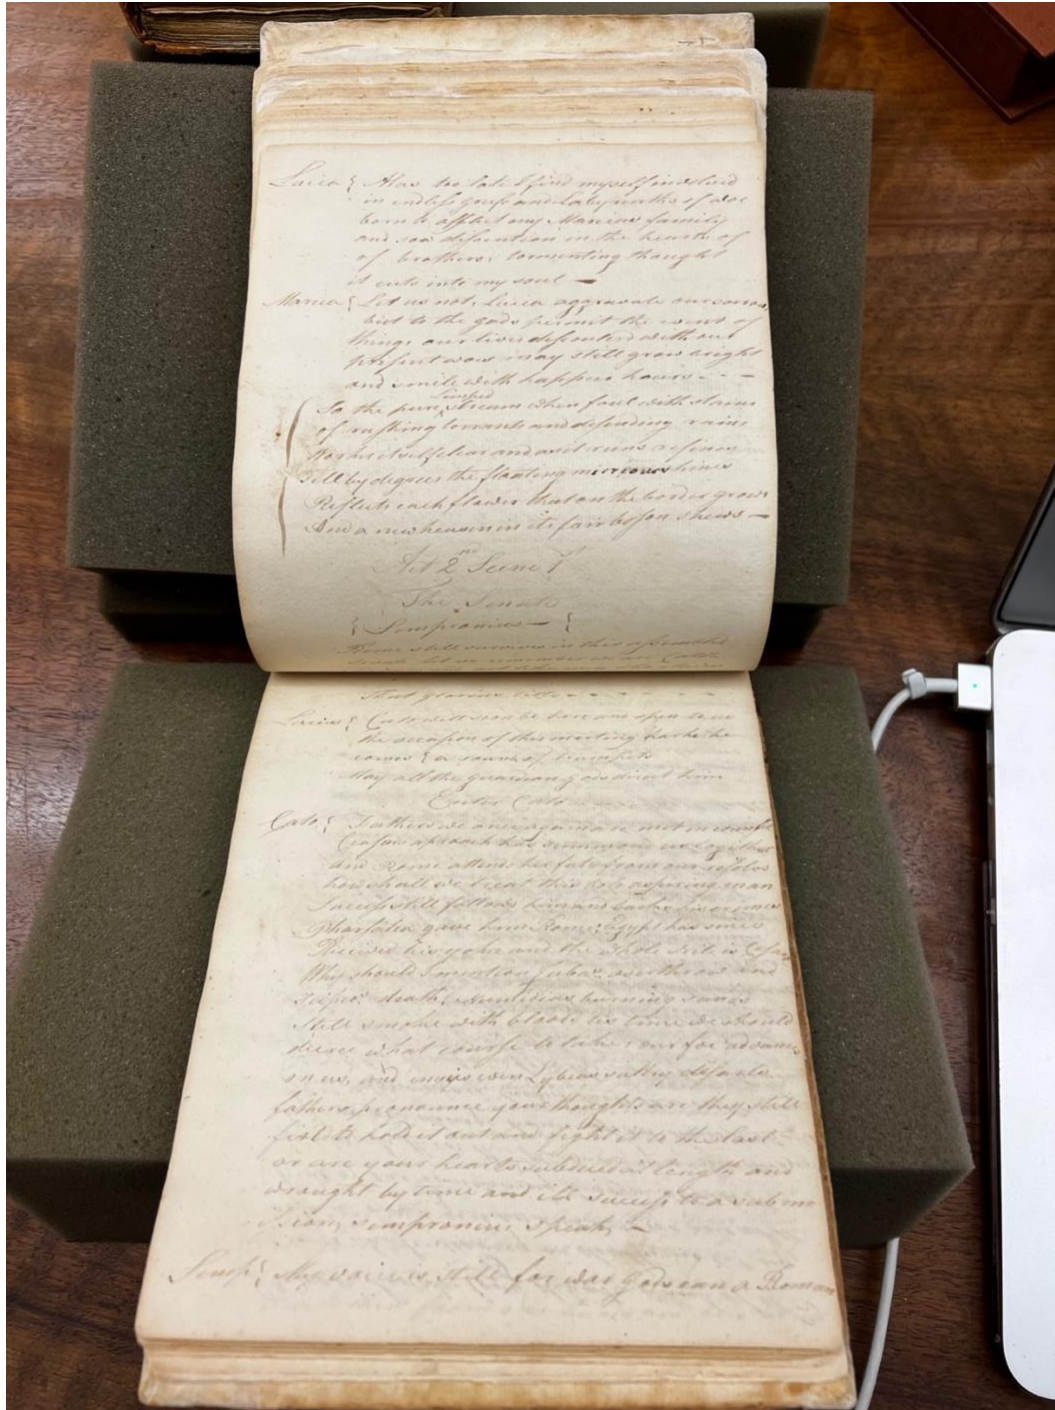 Lucia { Alas too late I find myself involvd
in endless griefs and Labyrinths of woe
born to afflict my Marcias family
and sow dissention in the hearts of
of brothers, tormenting thought
it cuts into my soul —
Marcia { Let us not, Lucia aggravate our sorrows
but to the gods permit the event of
things our lives discolourd with our
present woes may still grow bright
and smile with happier hours - - -
limped
So the pure, stream when foul with stains
of rushing torrents and desending rains
Works itself clear and as it runs refines
Till by degrees the floating mirrour shines
Reflects each flower that on the border grows
And a new heaven in its fair bosom shews —
Act 2nd Scene 1
The Senate
{ Sempronius — {
Rome still survives in this assembled
Senate let us remember we are Catos
that glorious title - - - -
Lucius { Cato will soon be here and open to us
the occasion of this meeting harke he
comes { a sound of trumpets
May all the guardian gods direct him
Enter Cato
Cato { Fathers we once again are met in council
Ceasars aproach has summond us together
and Rome attends her fate from our resolves
how shall we treat this bold aspuring man
Success still follows him and backs his crimes
Pharsalia gave him Rome: Egypt has since
Received his yoke and the whole Nile is Cesars
Why should I mention Jubas overthrow and
scipios death Numidias burning sands
Still smoke with blood tis time we should
decree what course to take our foe advances
on us, and envys even Lybias sultry desarts
fathers pronounce your thoughts are they still
fixt to hold it out and fight it to the last
or are your hearts subdued at length and
wrought by time and ill success to a submi
ssion, sempronius speak, —
Semp { My voice is still for war Gods can a Roman